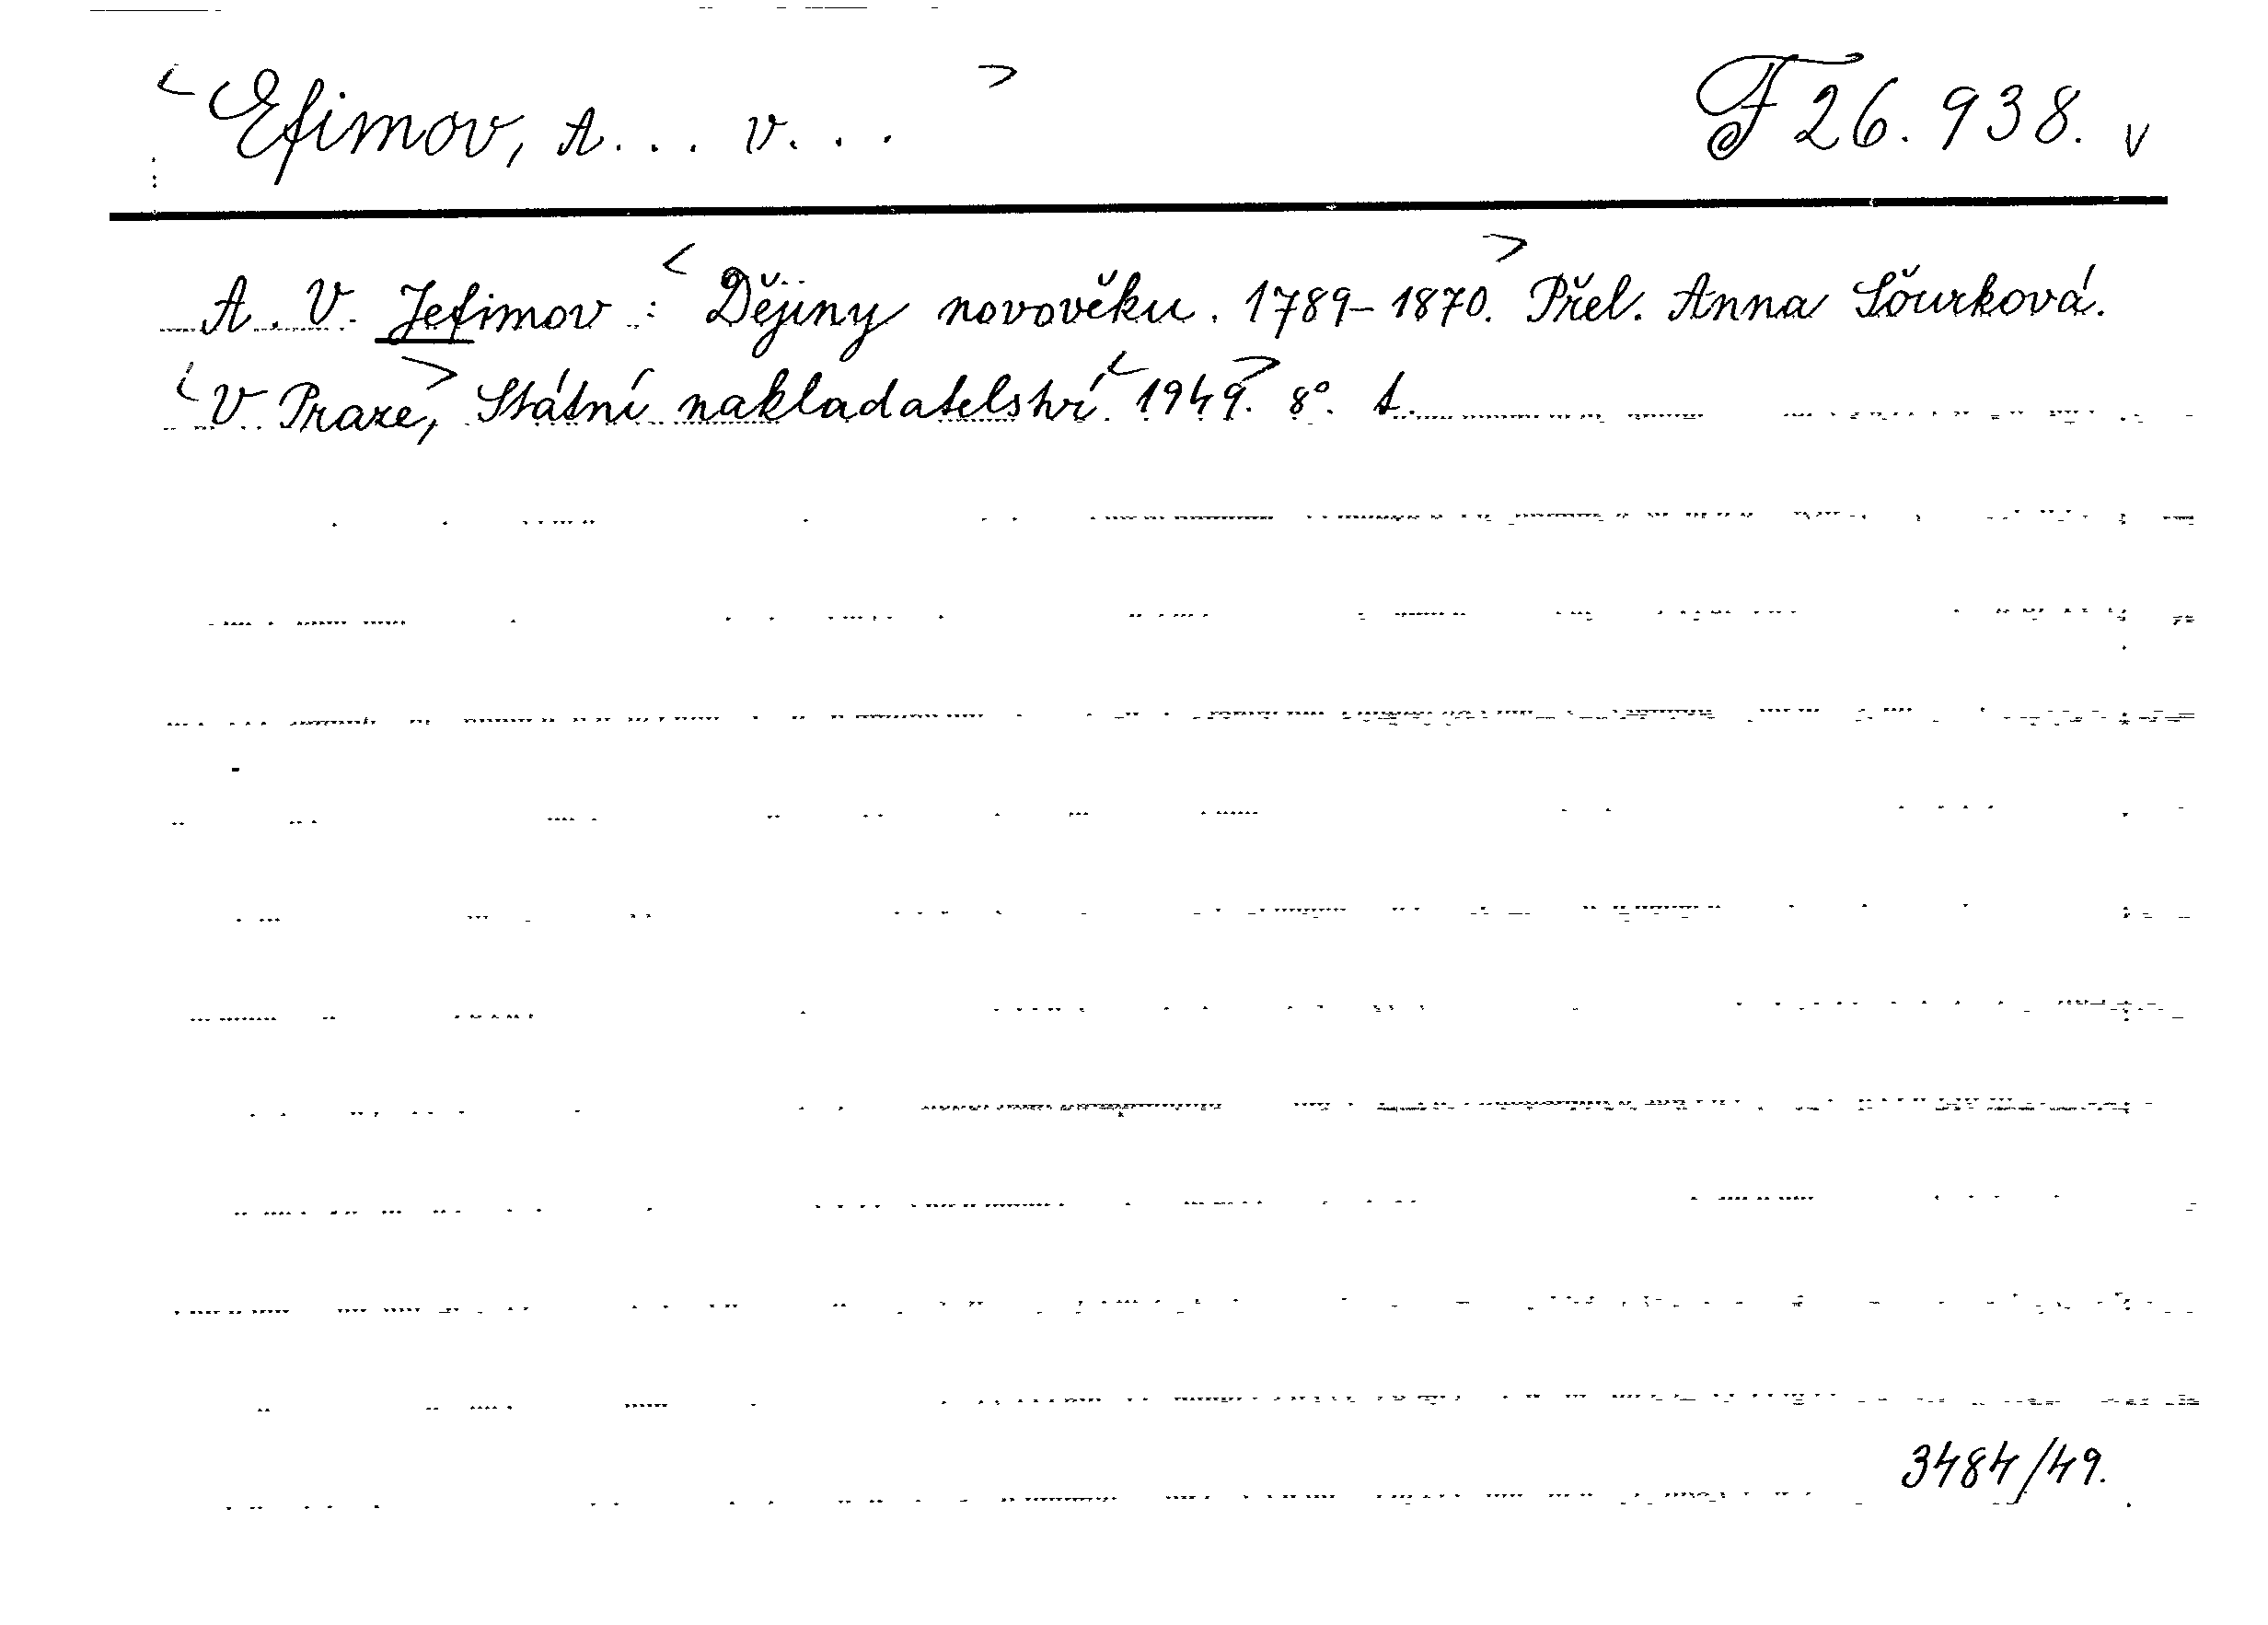 <Efimov, A... V...> F 26.938. v
A. V. Jefimov : <Dějiny novověku. 1789-1870.> Přel. Anna Šourková.
<V Praze,> Státní nakladatelství <1949.> 8°. t.
3484/49.